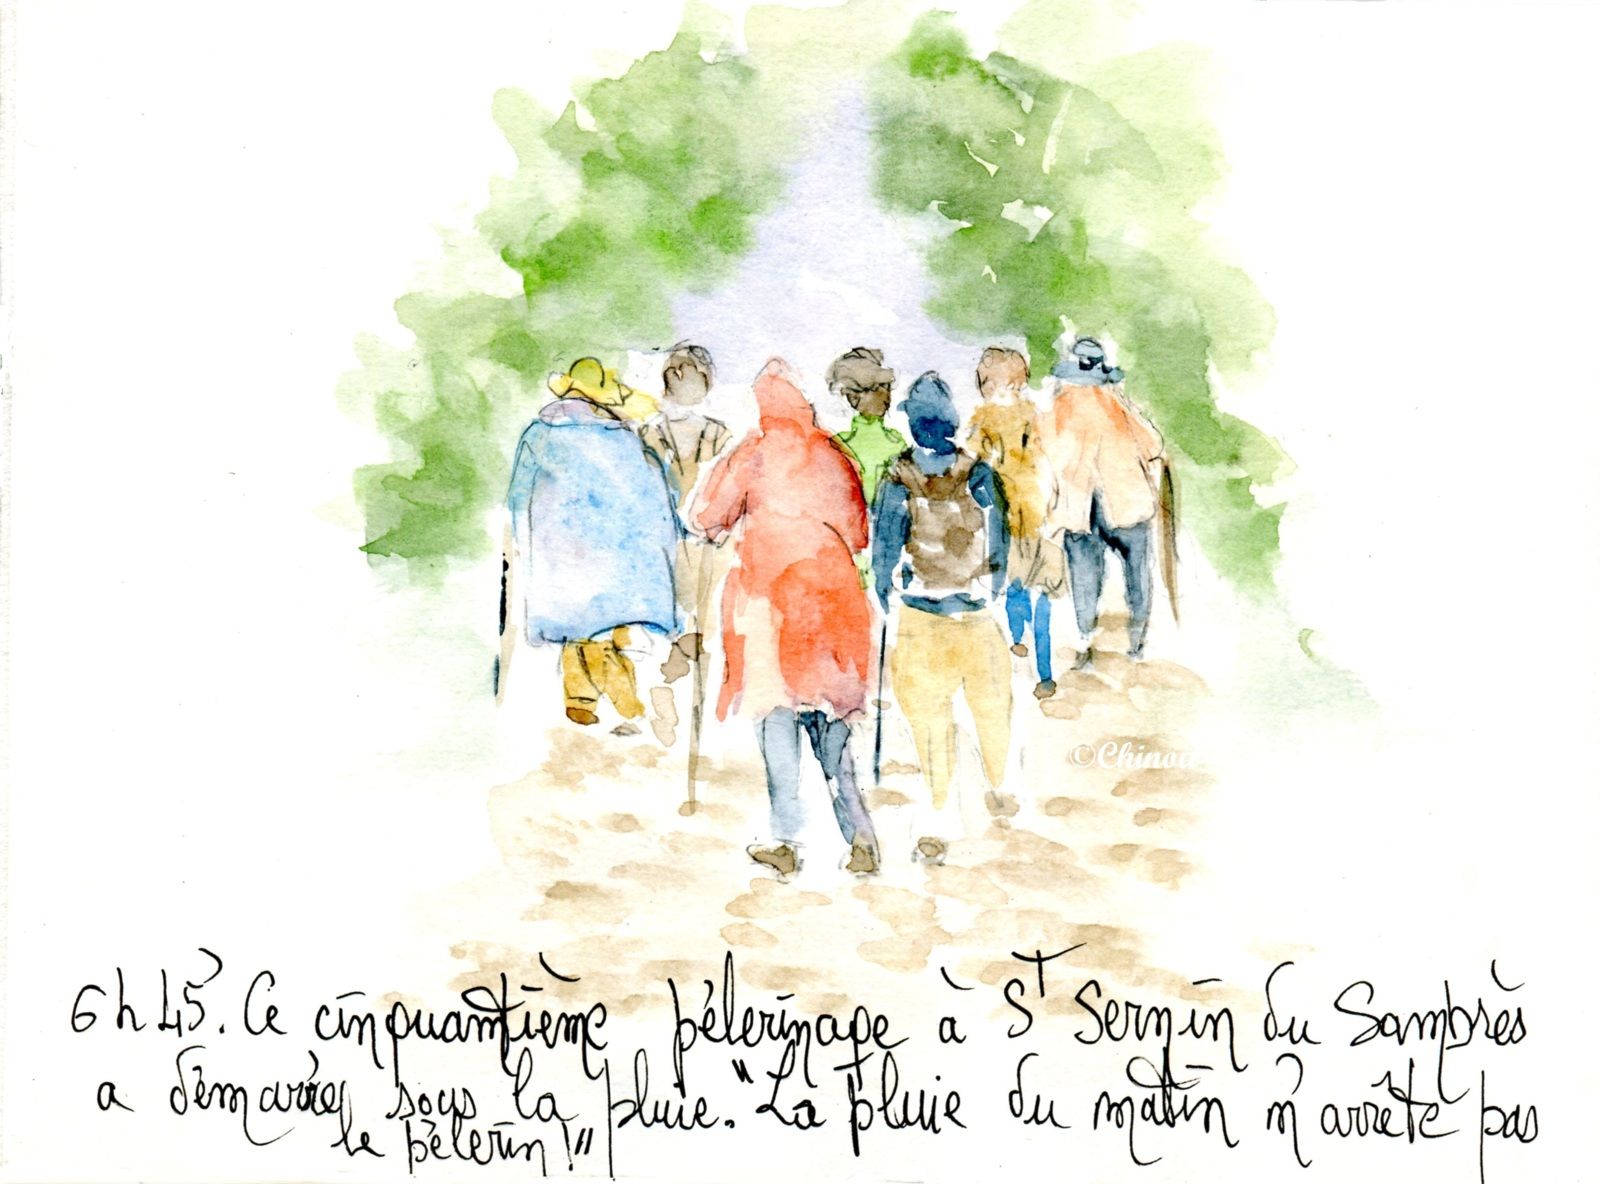 ©Chinou
6h45. Ce cinquantième pélerinage à St Sernin du Sambrès
a démarré sous la pluie. "La pluie du matin n'arrête pas
le pélerin!"